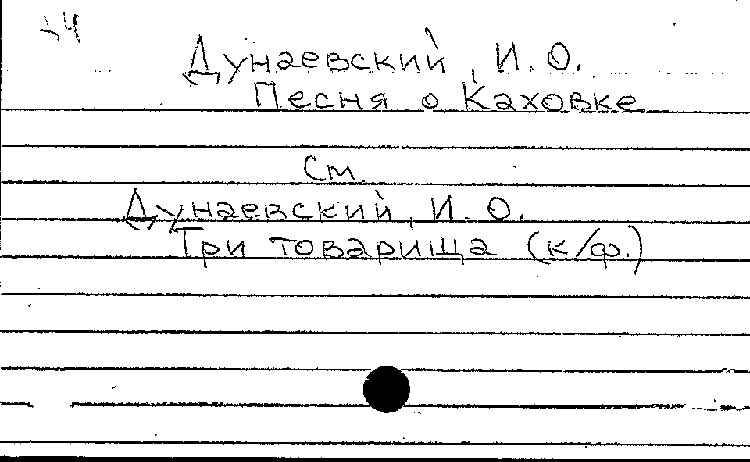 Дунаевский, И. О.
Песня о Каховке
См.
Дунаевский, И. О.
Три товарища (к/ф.)